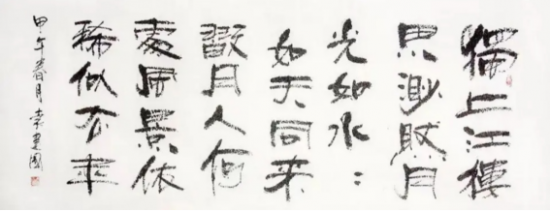 獨上江樓
思渺然月
光如水：
如天同来
翫月人何
處風景依
稀似去年
甲午春月李國